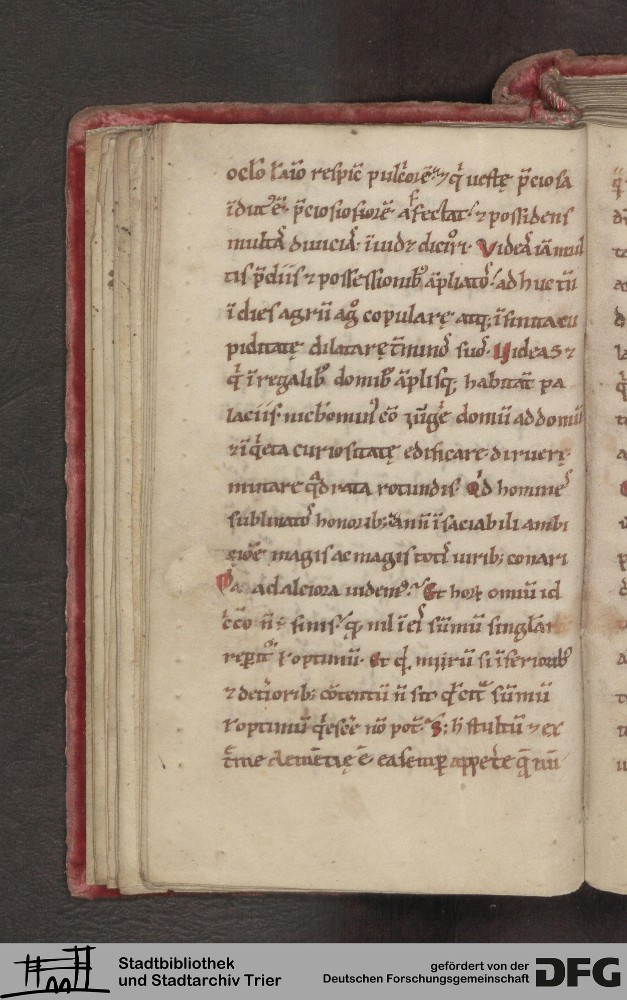 oclo l aīo respic̄ pulc̄orē ⁊ q̇ uestę p̄ciosa
īdut᷒ ē p̄ciosiorē affectat ⁊ possidens
multā diuiciā īuidꝫ diciori Videā iā mul
tis p̄diis ⁊ possessionibꝰ āpliatos ad huc tn̄
ī dies agrū ag̊ copularę atqꝫ īfinita cu
piditatę dilatarę t̄minos suos Uideas ⁊
q̇ ī regalibꝰ domibꝰ āplisqꝫ habitāt pa
laciis nichomin᷒ domū ad domū
⁊ īq̇eta curiositatę edificare diruerę
mutare q̄drata rotundis Q̇d homines
sublimatos honoribꝫ ann̄ īsaciabili ambi
magis ac magis totis uiribꝫ conari
ad alciora uidem᷒ Et horꝝ omniū id
c̄co n̄ ē finis nil ī eis sūmū singlar
rep̄it᷒ l optimū Et q̇d mirū si īferioribꝰ
⁊ det̄ioribꝫ cōtentū n̄ sit q̇ cit̄ sūmū
l optimū q̇esc̄e nō pot̄ Sꝫ h stultū ⁊ ex
t̄me demētię ē ea semꝑ appet̄e q̄ nū
Stadtbibliothek
und Stadtarchiv Trier
gefördert von der
Deutschen Forschungsgemeinschaft
DFG